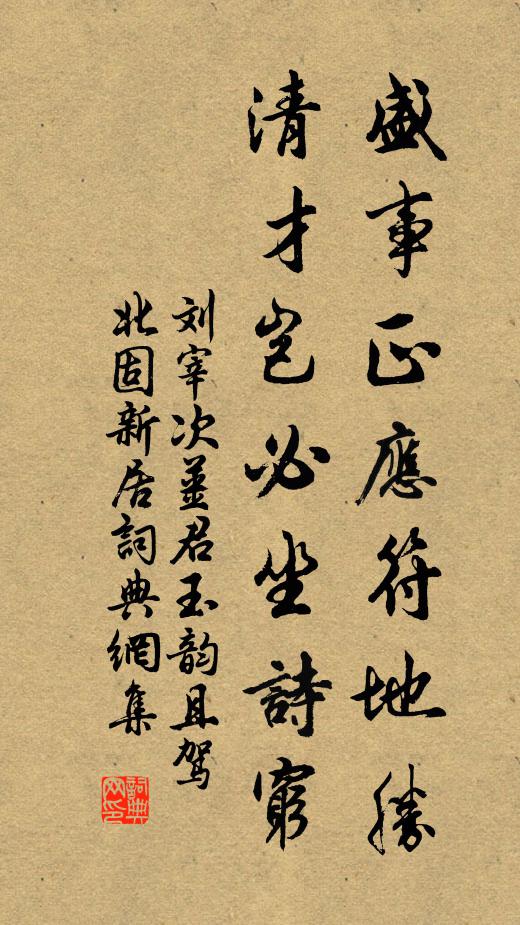 盛事正應符地勝
清才豈必坐詩窮
刘宰次薑君玉韵且驾
北固新居詞典網集
詞典网印